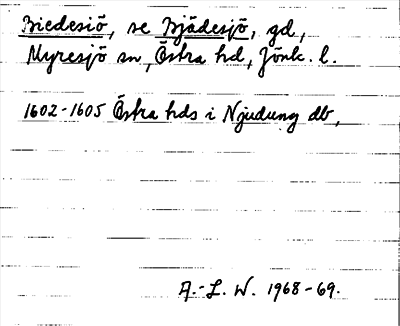 Biedesiö, se Bjädesjö, gd,
Myresjö sn, Östra hd, Jönk. l.
1602-1605 Östra hds i Njudung db,
A.-L. W. 1968-69.